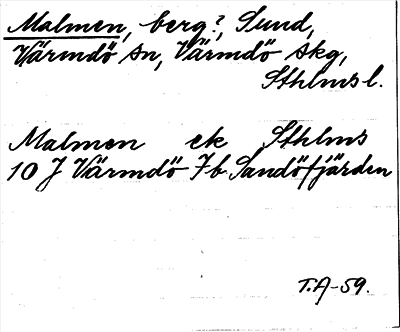 Malmen, berg?, Sund,
Värmdö sn, Värmdö skg,
Sthlms l.
Malmen ek Sthlms
10 J Värmdö 7b Sandöfjärden
T.A-59.